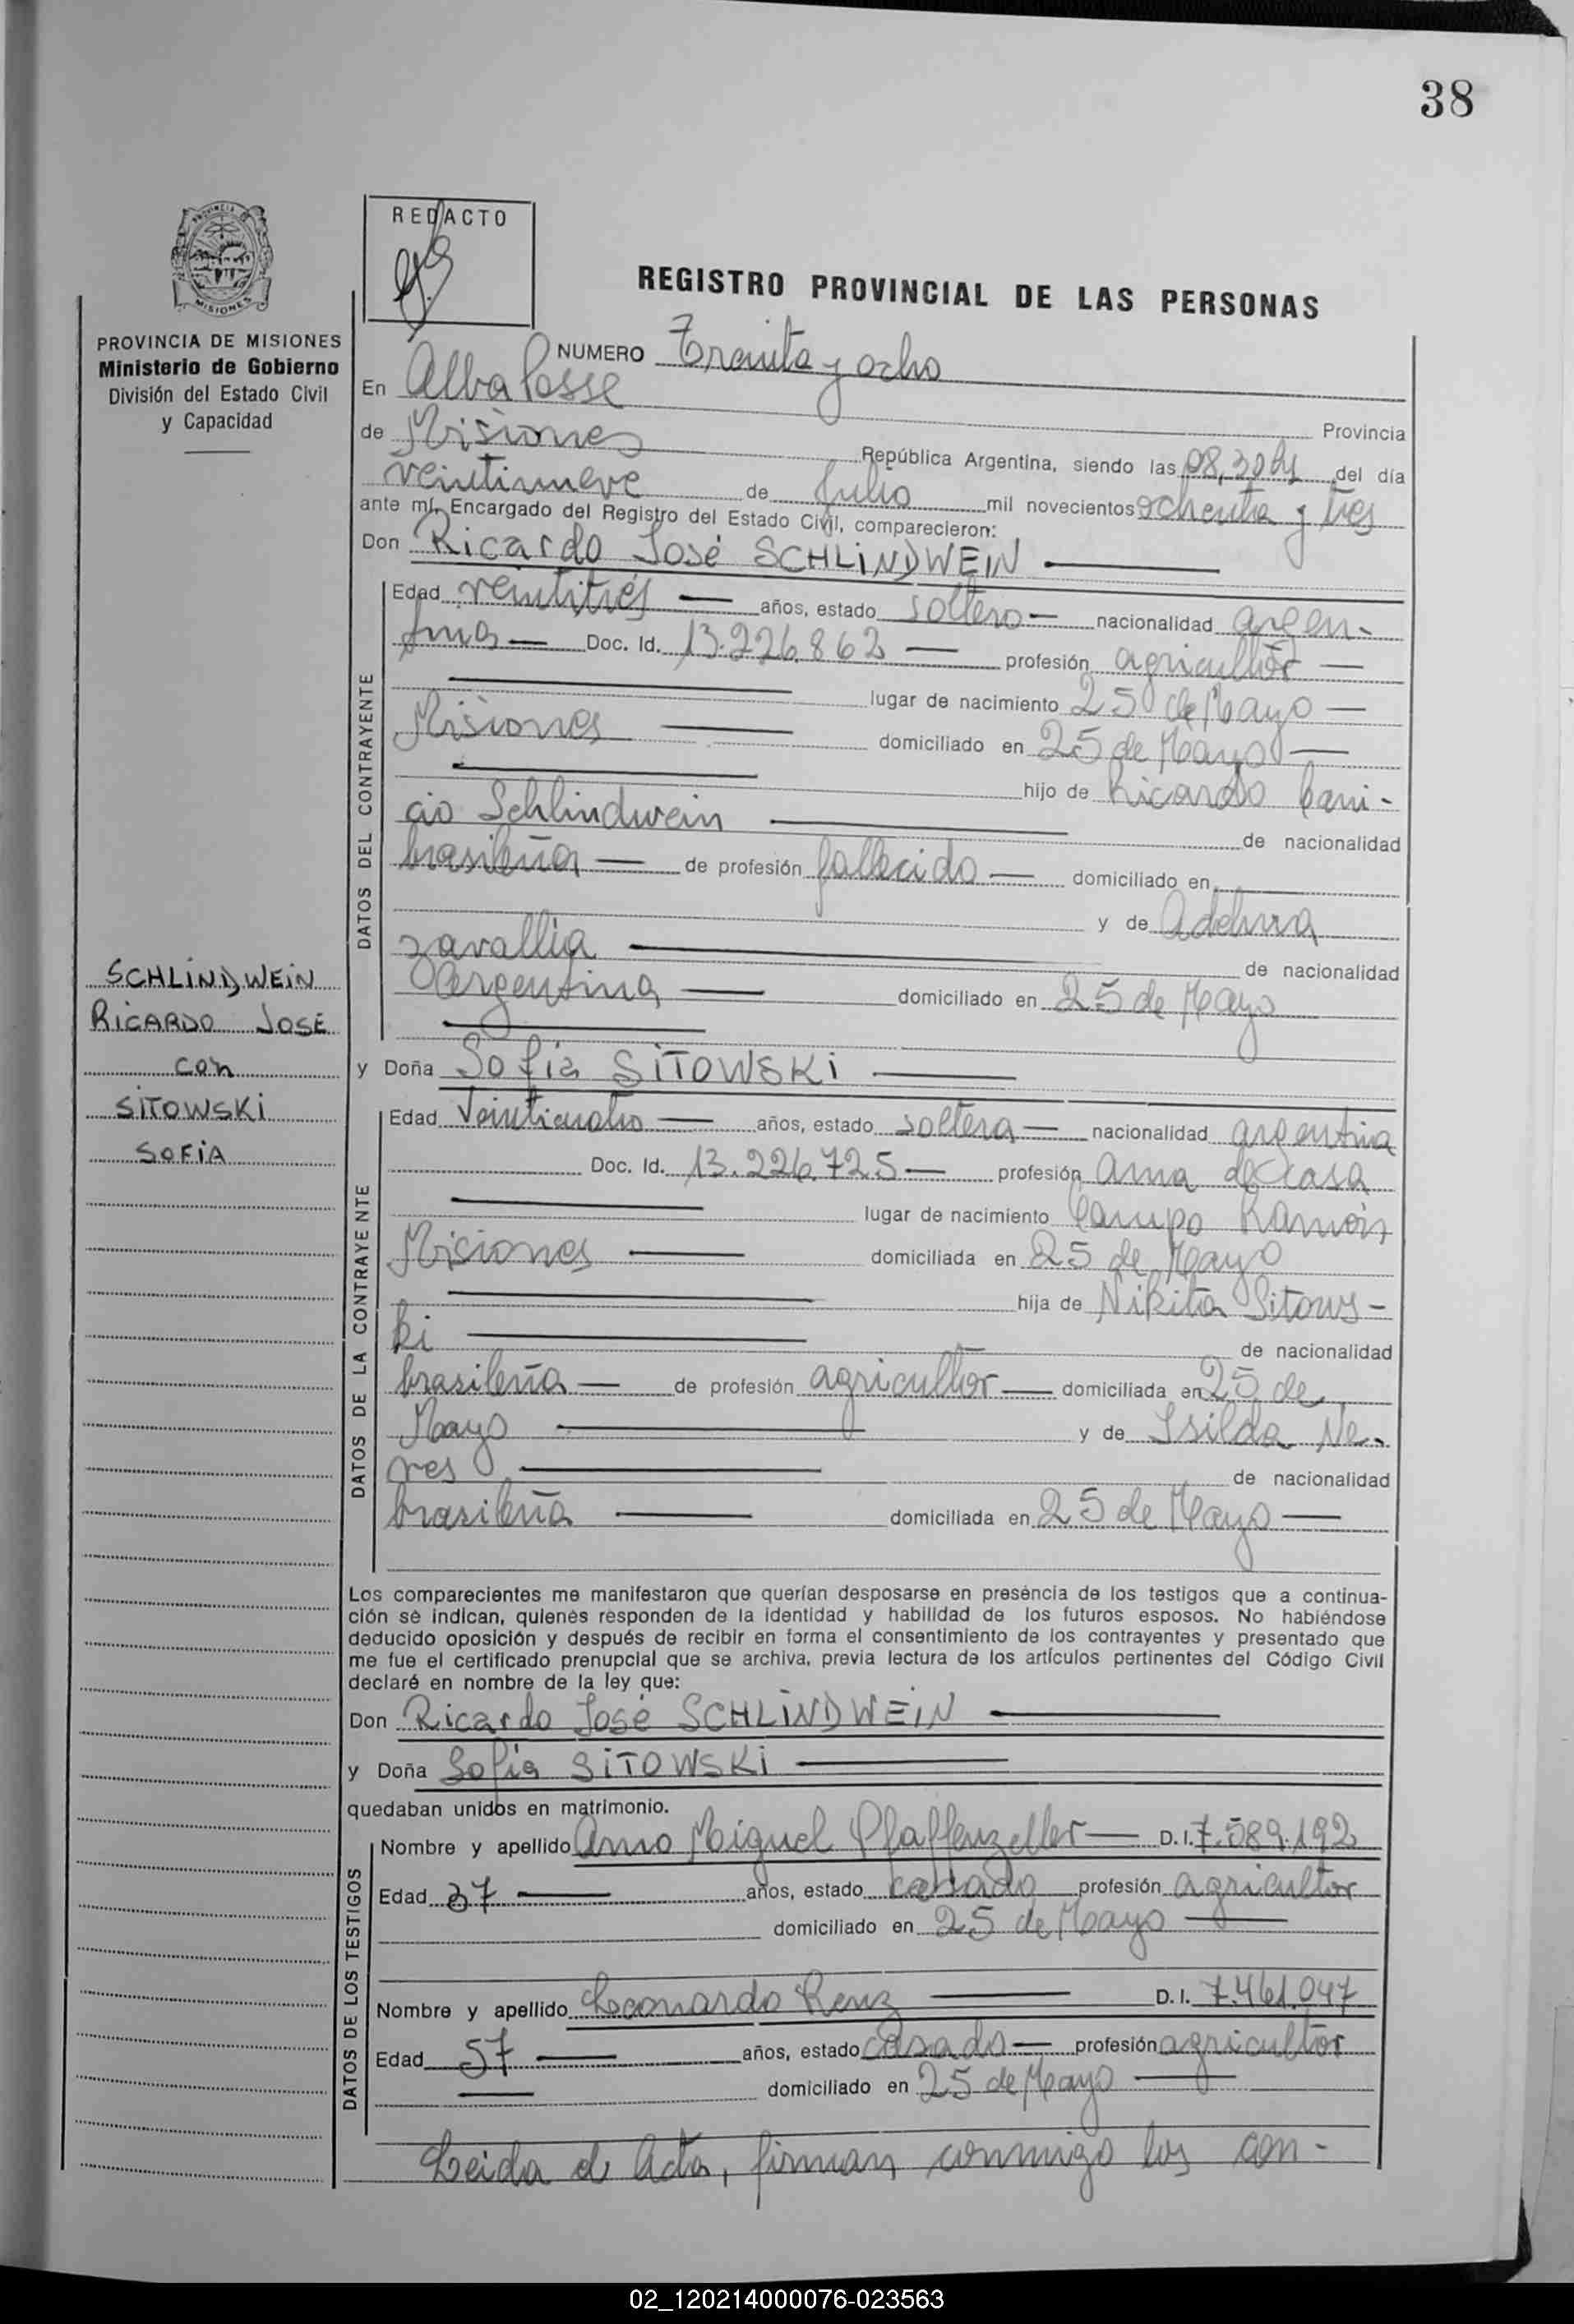 38
REDACTO
MISIONES
REGISTRO PROVINCIAL DE LAS PERSONAS
PROVINCIA DE MISIONES
Ministerio de Gobierno
División del Estado Civil
y Capacidad
NUMERO Treinta y ocho
En Alba Posse
Provincia
de Misiones República Argentina, siendo las 08,30 Hs del día
veintinueve de Julio mil novecientos ochenta y tres
ante mí, Encargado del Registro del Estado Civil, comparecieron:
Don Ricardo José SCHLINDWEIN
DATOS DEL CONTRAYENTE
Edad veintitrés años, estado soltero nacionalidad argen-
tina Doc. Id. 13.226.862 profesión agricultor
lugar de nacimiento 25 de Mayo
Misiones domiciliado en 25 de Mayo
hijo de Ricardo Cani-
cio Schlindwein de nacionalidad
brasileña de profesión fallecido domiciliado en
y de Adelina
zavallia de nacionalidad
Argentina domiciliado en 25 de Mayo
SCHLINDWEIN
RICARDO JOSÉ
con
SITOWSKI
SOFIA
y Doña Sofia SITOWSKI
DATOS DE LA CONTRAYENTE
Edad Veinticuatro años, estado soltera nacionalidad argentina
Doc. Id. 13.226.725 profesión Ama de casa
lugar de nacimiento Campo Ramón
Misiones domiciliada en 25 de Mayo
hija de Nikita Sitows-
ki de nacionalidad
brasileña de profesión agricultor domiciliada en 25 de
Mayo y de Isilda Ne-
res de nacionalidad
brasileña domiciliada en 25 de Mayo
Los comparecientes me manifestaron que querían desposarse en presencia de los testigos que a continua-
ción se indican, quienes responden de la identidad y habilidad de los futuros esposos. No habiéndose
deducido oposición y después de recibir en forma el consentimiento de los contrayentes y presentado que
me fue el certificado prenupcial que se archiva, previa lectura de los artículos pertinentes del Código Civil
declaré en nombre de la ley que:
Don Ricardo José SCHLINDWEIN
y Doña Sofia SITOWSKI
quedaban unidos en matrimonio.
DATOS DE LOS TESTIGOS
Nombre y apellido Arno Miguel Pfaffenzeller D. I. 7.589.192
Edad 37 años, estado casado profesión agricultor
domiciliado en 25 de Mayo
Nombre y apellido Leonardo Renz D. I. 7.461.047
Edad 57 años, estado casado profesión agricultor
domiciliado en 25 de Mayo
Leida el Acta, firman conmigo los con-
02_120214000076-023563